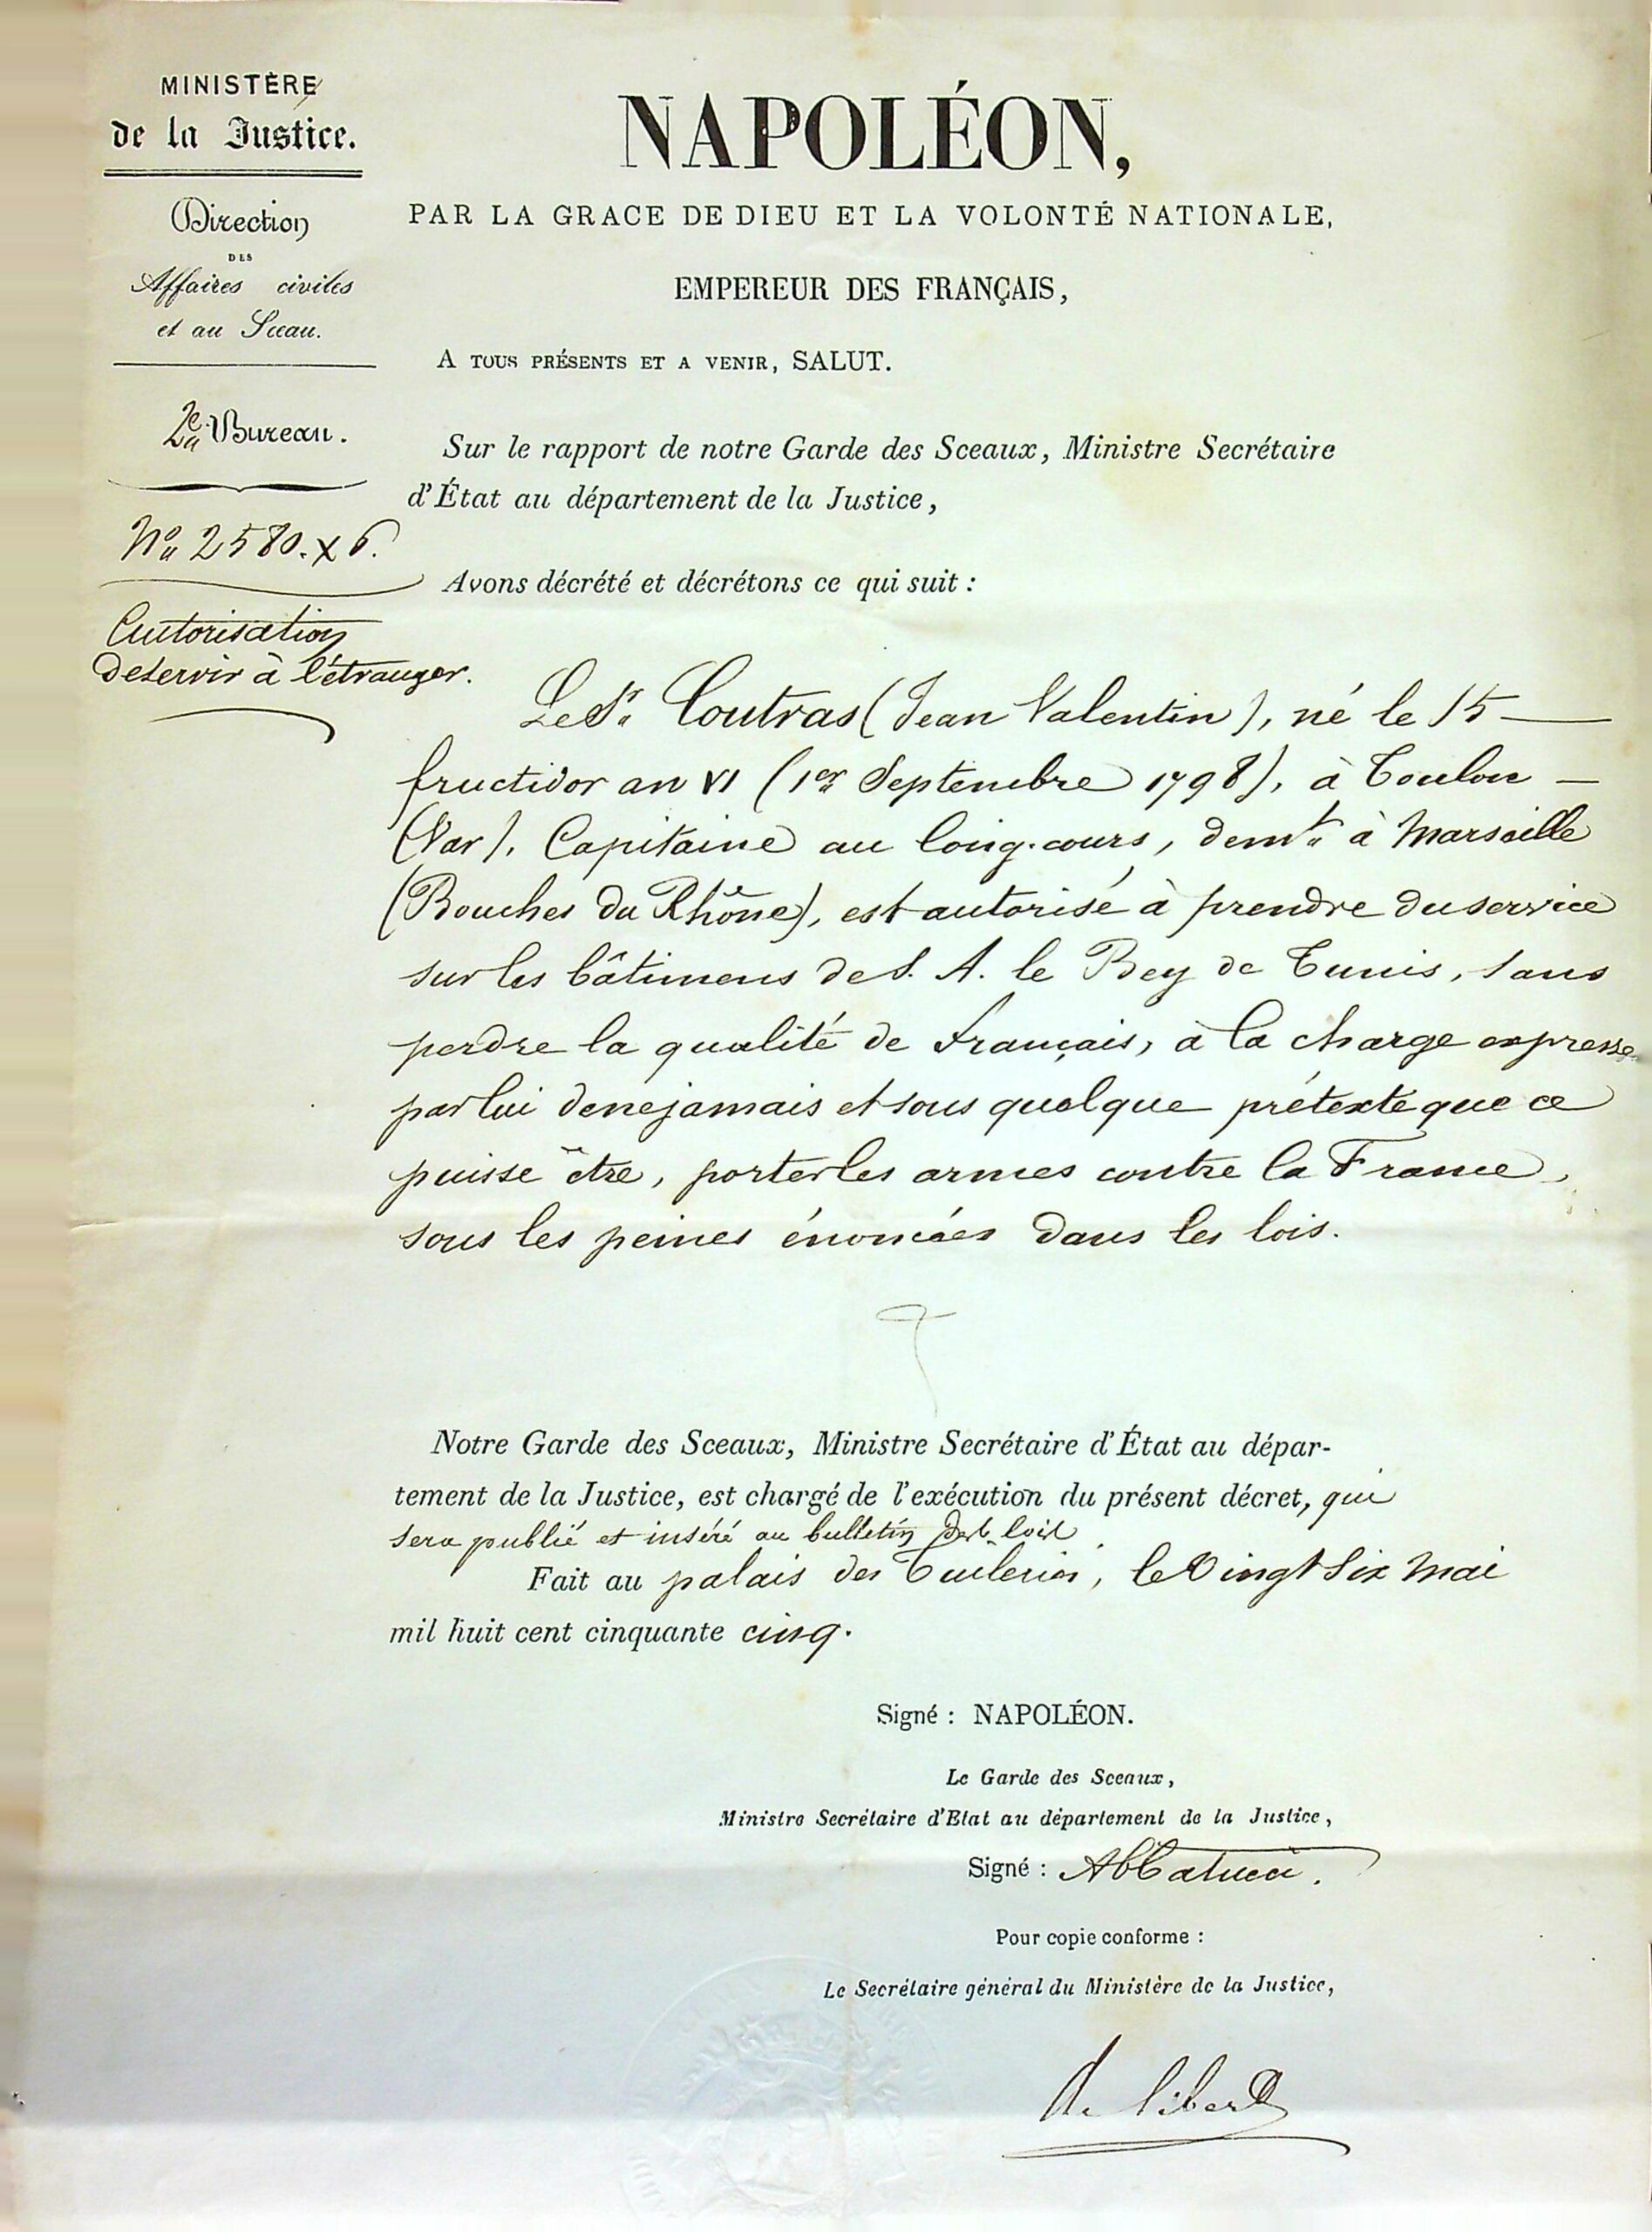 MINISTÈRE
de la Justice.
Direction
DES
Affaires civiles
et au Sceau.
2e Bureau.
No 2580. X 6.
Autorisation
de servir à l'étranger.
NAPOLÉON,
PAR LA GRACE DE DIEU ET LA VOLONTÉ NATIONALE,
EMPEREUR DES FRANÇAIS,
A TOUS PRÉSENTS ET A VENIR, SALUT.
Sur le rapport de notre Garde des Sceaux, Ministre Secrétaire
d'État au département de la Justice,
Avons décrété et décrétons ce qui suit :
Le Sr Coutras (Jean Valentin), né le 15
fructidor an VI (1er Septembre 1798), à Toulon
(Var), Capitaine au long-cours, demt à Marseille
(Bouches du Rhône), est autorisé à prendre du service
sur les bâtimens de S. A. le Bey de Tunis, sans
perdre la qualité de Français, à la charge expresse
par lui de ne jamais et sous quelque prétexte que ce
puisse être, porter les armes contre la France,
sous les peines énoncées dans les lois.
Notre Garde des Sceaux, Ministre Secrétaire d'État au dépar-
tement de la Justice, est chargé de l'exécution du présent décret, qui
sera publié et inséré au bulletin des lois
Fait au palais des Tuileries, le Vingt Six Mai
mil huit cent cinquante cinq.
Signé : NAPOLÉON.
Le Garde des Sceaux,
Ministre Secrétaire d'Etat au département de la Justice,
Signé : Abbatucci.
Pour copie conforme :
Le Secrétaire général du Ministère de la Justice,